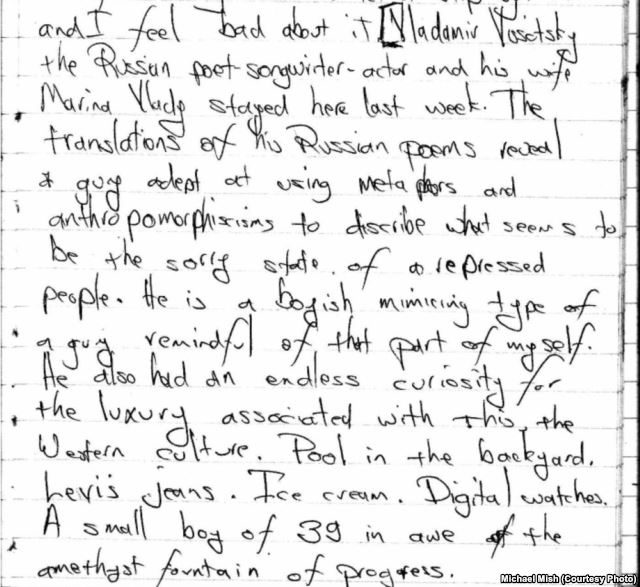 and I feel bad about it Vladamir Vosotsky
the Russian poet-songwirter-actor and his wife
Marina Vlady stayed here last week. The
translations of his Russian poems reveal
a guy adept at using metaphors and
anthropomorphisisms to discribe what seems to
be the sorry state of a repressed
people. He is a boyish mimicing type of
a guy remindful of that part of myself.
He also had an endless curiosity for
the luxury associated with this, the
Western culture. Pool in the backyard.
Levi's jeans. Ice cream. Digital watches.
A small boy of 39 in awe of the
amethyst fountain of progress.
Michael Mish (Courtesy Photo)